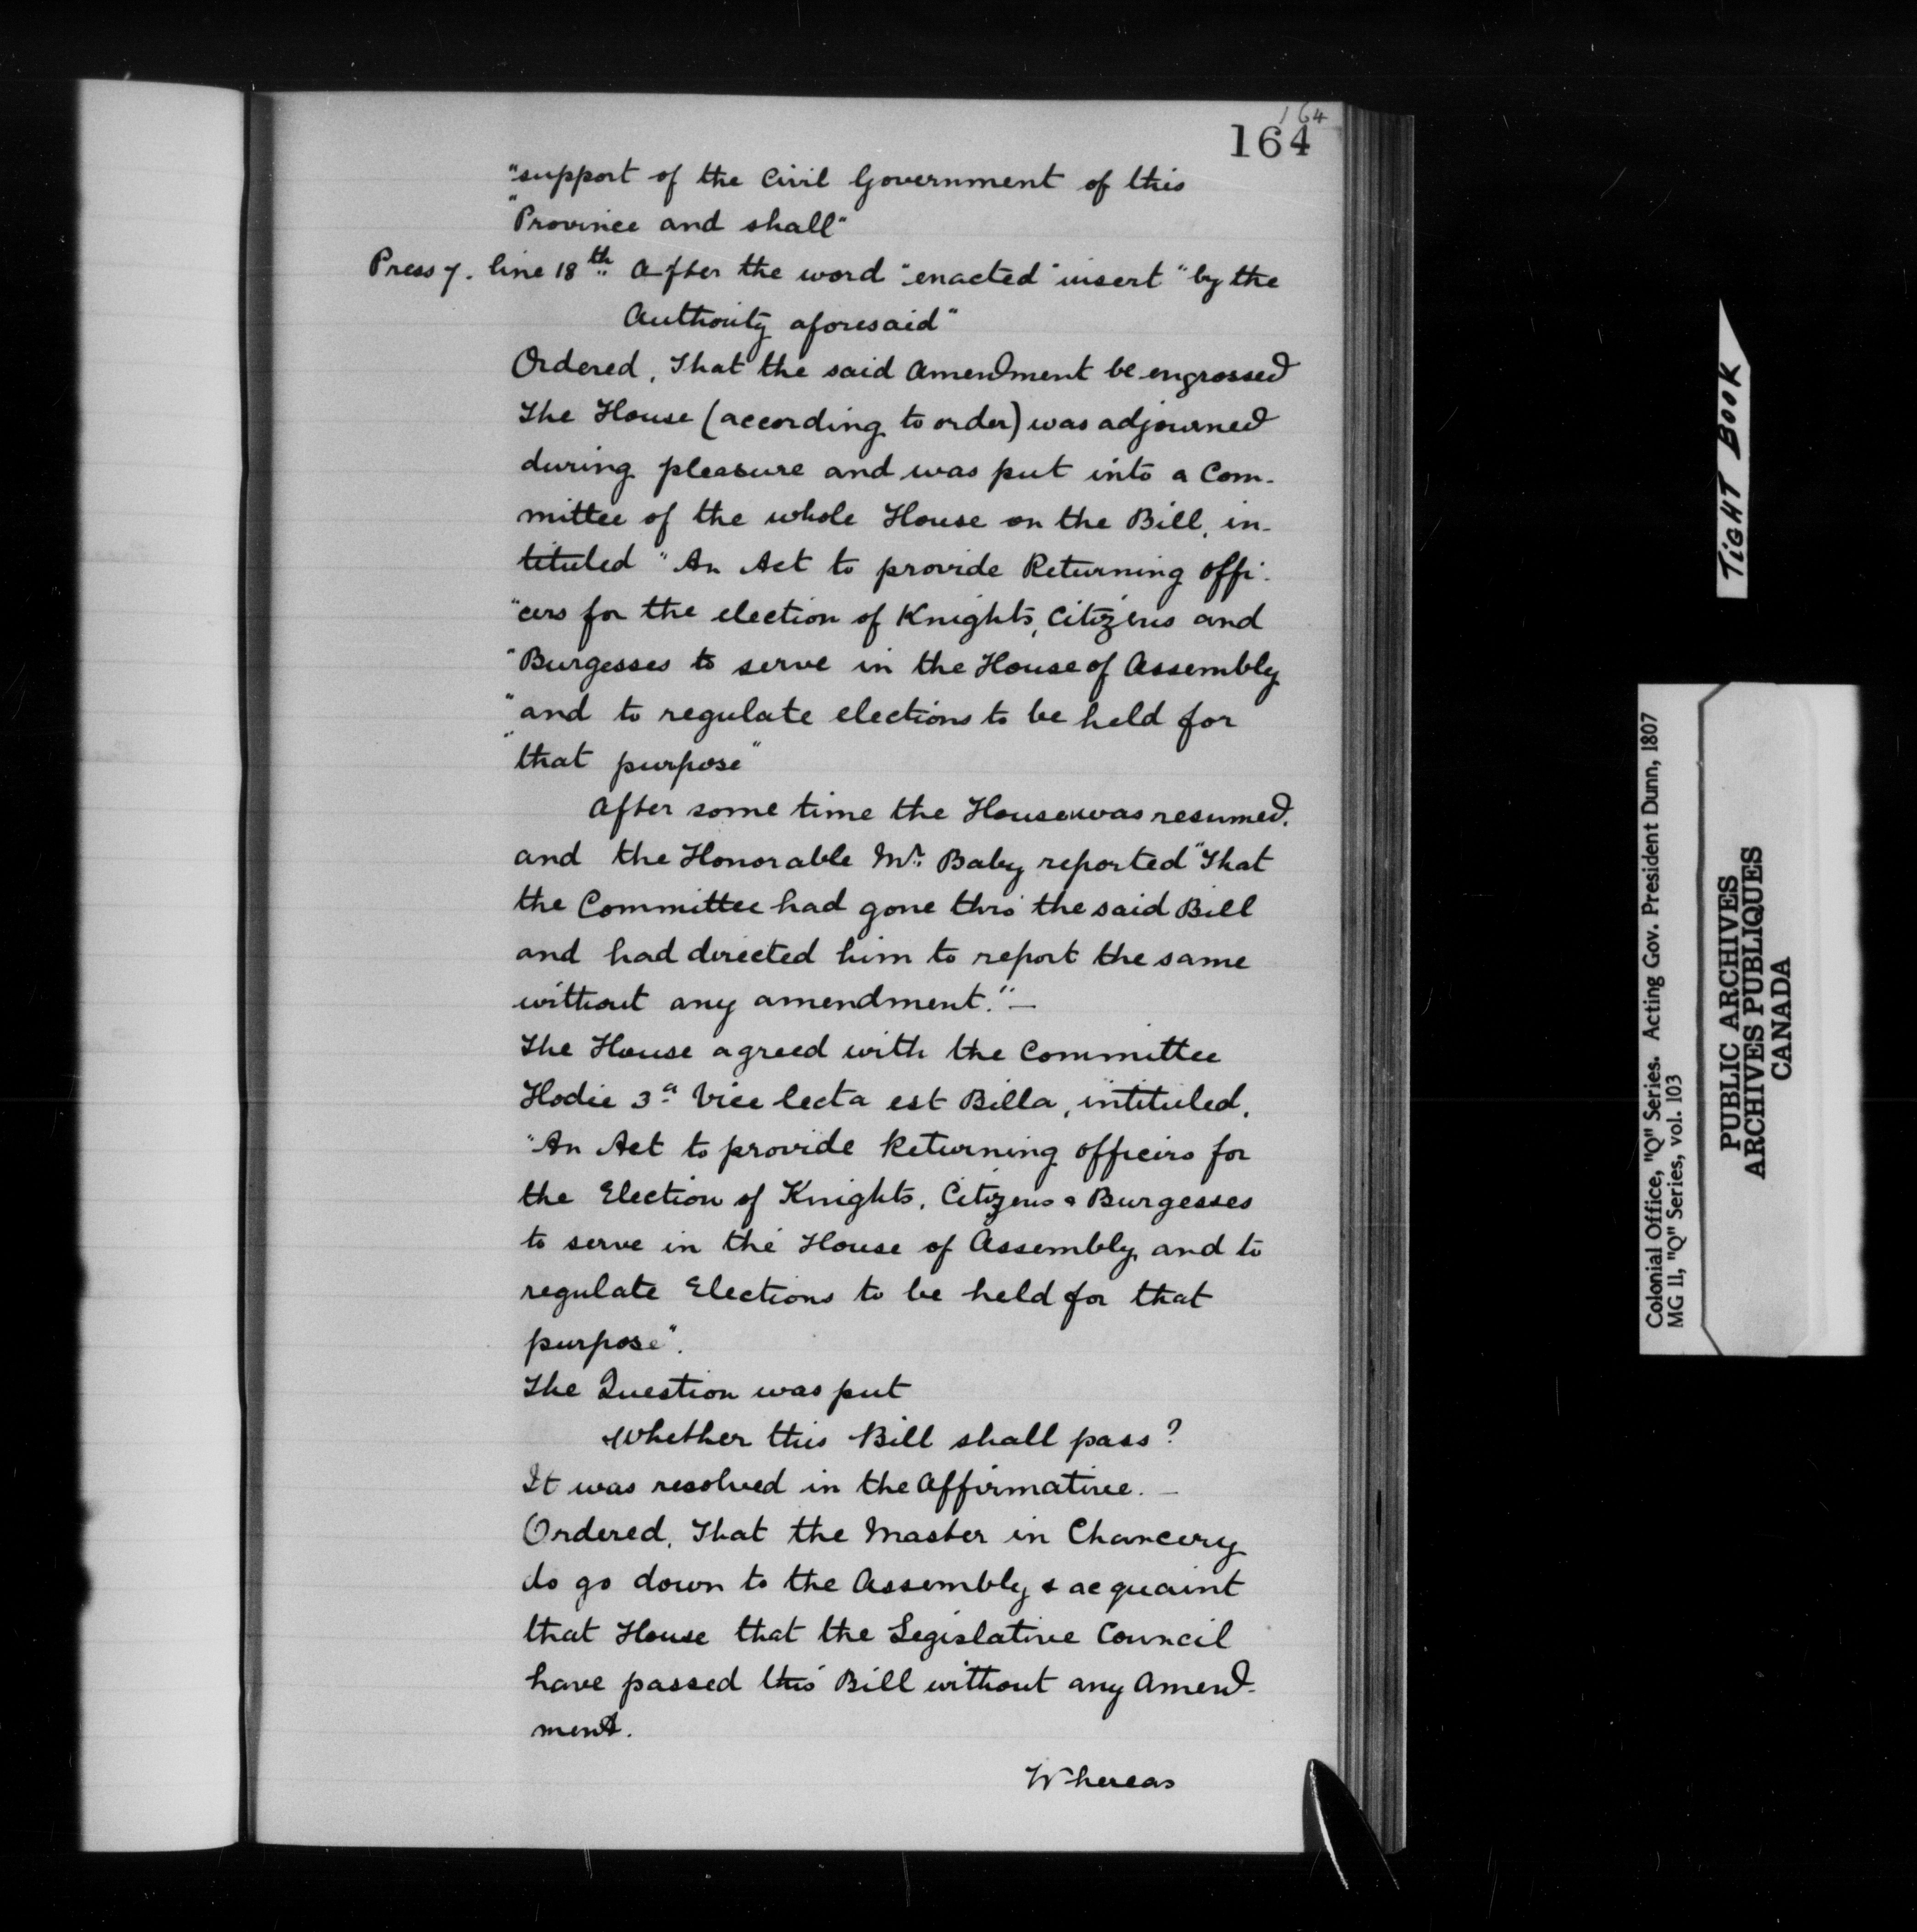 164
164
"support of the Civil Government of this
"Province and shall"
Press 7. line 18th After the word "enacted" insert "by the
Authority aforesaid"
Ordered, That the said Amendment be engrossed
The House (according to order) was adjourned
during pleasure and was put into a Com-
mittee of the whole House on the Bill, in-
tituled "An Act to provide Returning offi-
"cers for the election of Knights, Citizens and
"Burgesses to serve in the House of Assembly
"and to regulate elections to be held for
"that purpose"
After some time the House was resumed,
and the Honorable Mr. Baby reported "That
the Committee had gone thro' the said Bill
and had directed him to report the same
without any amendment."—
The House agreed with the Committee
Hodie 3a Vice lecta est Billa, intituled,
"An Act to provide Returning officers for
the Election of Knights, Citizens & Burgesses
to serve in the House of Assembly and to
regulate Elections to be held for that
purpose".
The Question was put
Whether this Bill shall pass?
It was resolved in the Affirmative. —
Ordered, That the Master in Chancery
do go down to the Assembly & acquaint
that House that the Legislative Council
have passed this Bill without any Amend-
ment.
Whereas
TIGHT BOOK
Colonial Office, "Q" Series. Acting Gov. President Dunn, 1807
MG 11, "Q" Series, vol. 103
PUBLIC ARCHIVES
ARCHIVES PUBLIQUES
CANADA